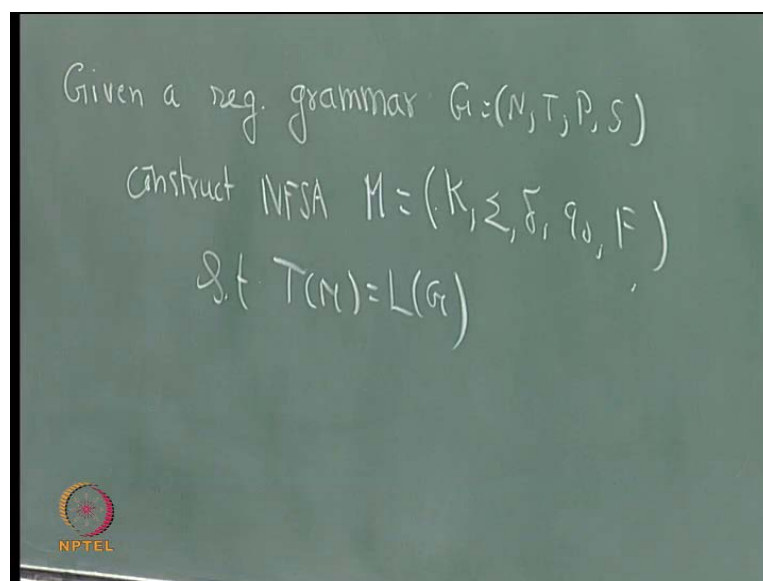 Given a reg. grammar G=(N,T,P,S)
Construct NFSA M = (K, Σ, δ, q₀, F)
S.t T(M)=L(G)
NPTEL